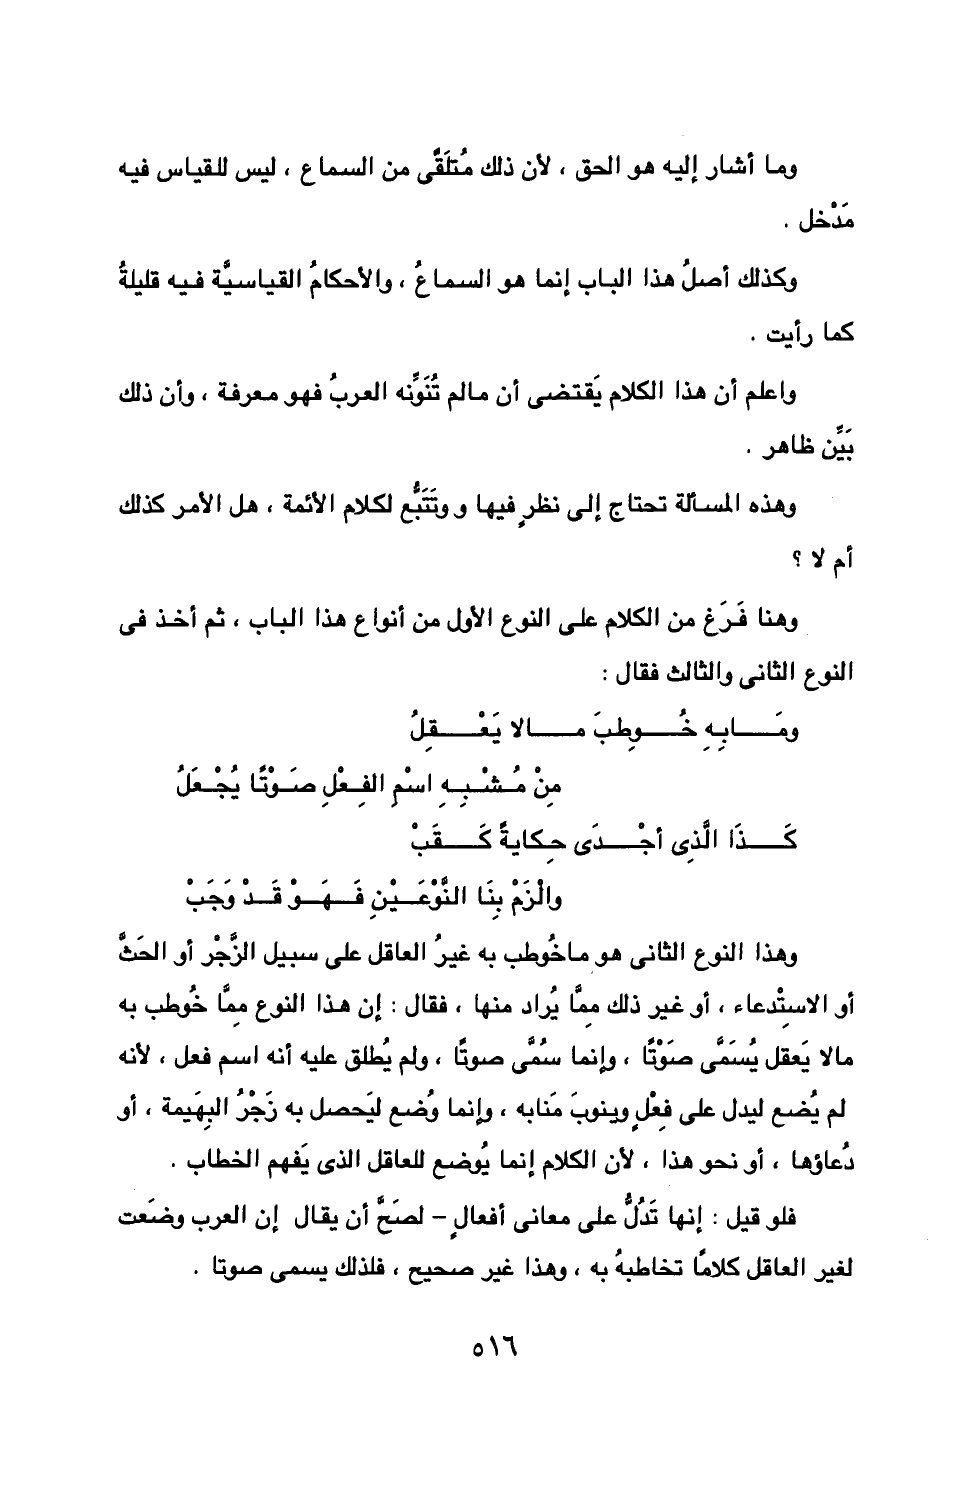 وما أشار إليه هو الحق ، لأن ذلك مُتلَقًّى من السماع ، ليس للقياس فيه
مَدْخل .
وكذلك أصلُ هذا الباب إنما هو السماعُ ، والأحكامُ القياسيَّة فيه قليلةُ
كما رأيت .
واعلم أن هذا الكلام يَقتضى أن مالم تُنَوِّنه العربُ فهو معرفة ، وأن ذلك
بَيِّن ظاهر .
وهذه المسألة تحتاج إلى نظرٍ فيها و وتَتَبُّع لكلام الأئمة ، هل الأمر كذلك
أم لا ؟
وهنا فَرَغ من الكلام على النوع الأول من أنواع هذا الباب ، ثم أخذ فى
النوع الثانى والثالث فقال :
ومَـــابِهِ خُـــوطِبَ مـــالا يَعْـــقِلُ
مِنْ مُـشْـبِـهِ اسْمِ الفِـعْلِ صَـوْتًا يُجْـعَلُ
كَـــذَا الَّذِى أجْـــدَى حِـكايةً كَـــقَبْ
والْزَمْ بِنَا النَّوْعَـيْنِ فَـهَـوْ قَـدْ وَجَبْ
وهذا النوع الثانى هو ماخُوطب به غيرُ العاقل على سبيل الزَّجْر أو الحَثَّ
أو الاستِدعاء ، أو غير ذلك ممَّا يُراد منها ، فقال : إن هذا النوع ممَّا خُوطِب به
مالا يَعقل يُسَمَّى صَوْتًا ، وإنما سُمَّى صوتًا ، ولم يُطلق عليه أنه اسم فعل ، لأنه
لم يُضع ليدل على فِعْلٍ وينوبَ مَنابه ، وإنما وُضع ليَحصل به زَجْرُ البهِيمة ، أو
دُعاؤها ، أو نحو هذا ، لأن الكلام إنما يُوضع للعاقل الذى يَفهم الخطاب .
فلو قيل : إنها تَدُلُّ على معانى أفعالٍ – لصَحَّ أن يقال إن العرب وضَعت
لغير العاقل كلامًا تخاطبهُ به ، وهذا غير صحيح ، فلذلك يسمى صوتا .
٥١٦